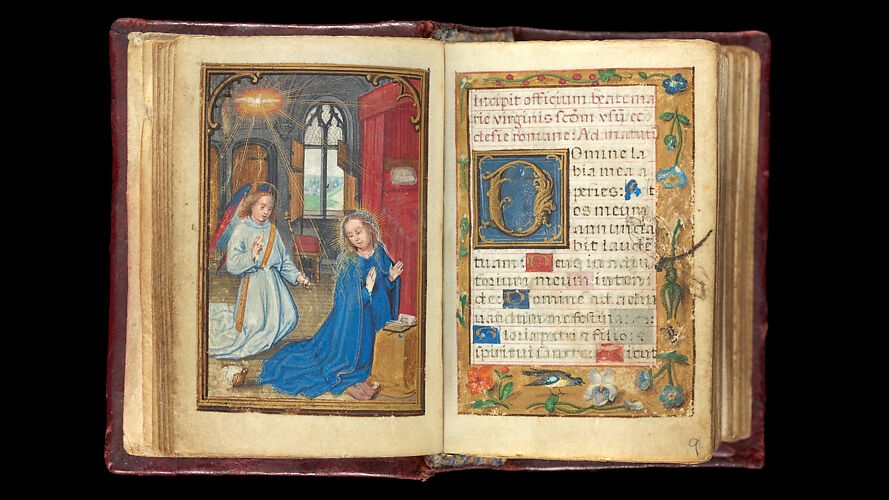 Incipit officium beate ma
rie virginis scdm usu ec
clesie romane: Ad matuti
Domine la
bia mea a
peries: Et
os meum
annuncia
bit laude
tuam: Deus in adiu
torium meum inten
de: Domine ad adiu
uandum me festina:
Gloria patri et filio et
spiritui sancto: Sicut
9